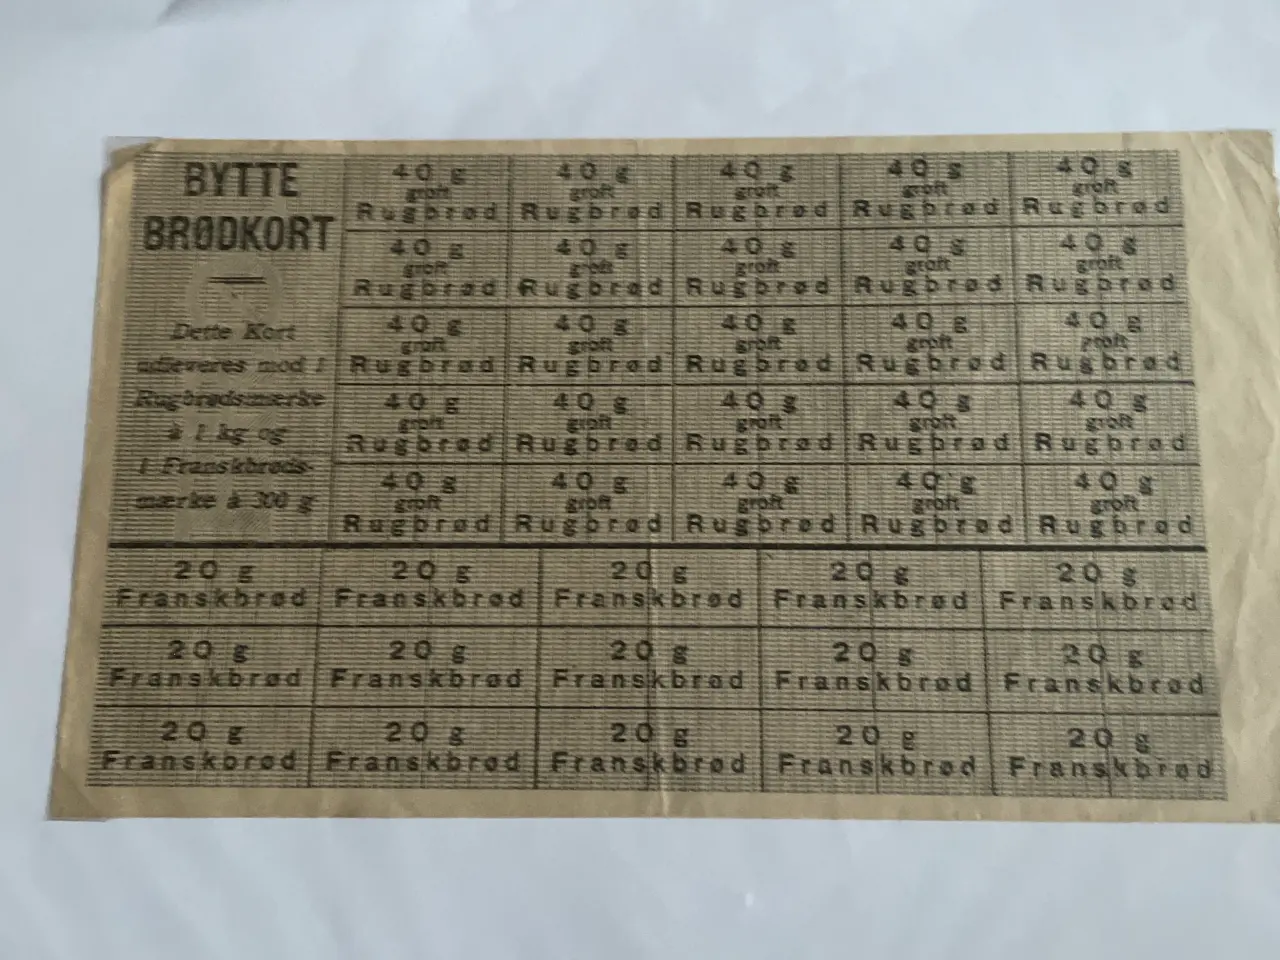 BYTTE
BRØDKORT
Dette Kort
udleveres mod 1
Rugbrødsmærke
à 1 kg og
1 Franskbrøds-
mærke à 300 g
40 g 40 g 40 g 40 g 40 g
groft groft groft groft groft
Rugbrød Rugbrød Rugbrød Rugbrød Rugbrød
40 g 40 g 40 g 40 g 40 g
groft groft groft groft groft
Rugbrød Rugbrød Rugbrød Rugbrød Rugbrød
40 g 40 g 40 g 40 g 40 g
groft groft groft groft groft
Rugbrød Rugbrød Rugbrød Rugbrød Rugbrød
40 g 40 g 40 g 40 g 40 g
groft groft groft groft groft
Rugbrød Rugbrød Rugbrød Rugbrød Rugbrød
40 g 40 g 40 g 40 g 40 g
groft groft groft groft groft
Rugbrød Rugbrød Rugbrød Rugbrød Rugbrød
20 g 20 g 20 g 20 g 20 g
Franskbrød Franskbrød Franskbrød Franskbrød Franskbrød
20 g 20 g 20 g 20 g 20 g
Franskbrød Franskbrød Franskbrød Franskbrød Franskbrød
20 g 20 g 20 g 20 g 20 g
Franskbrød Franskbrød Franskbrød Franskbrød Franskbrød